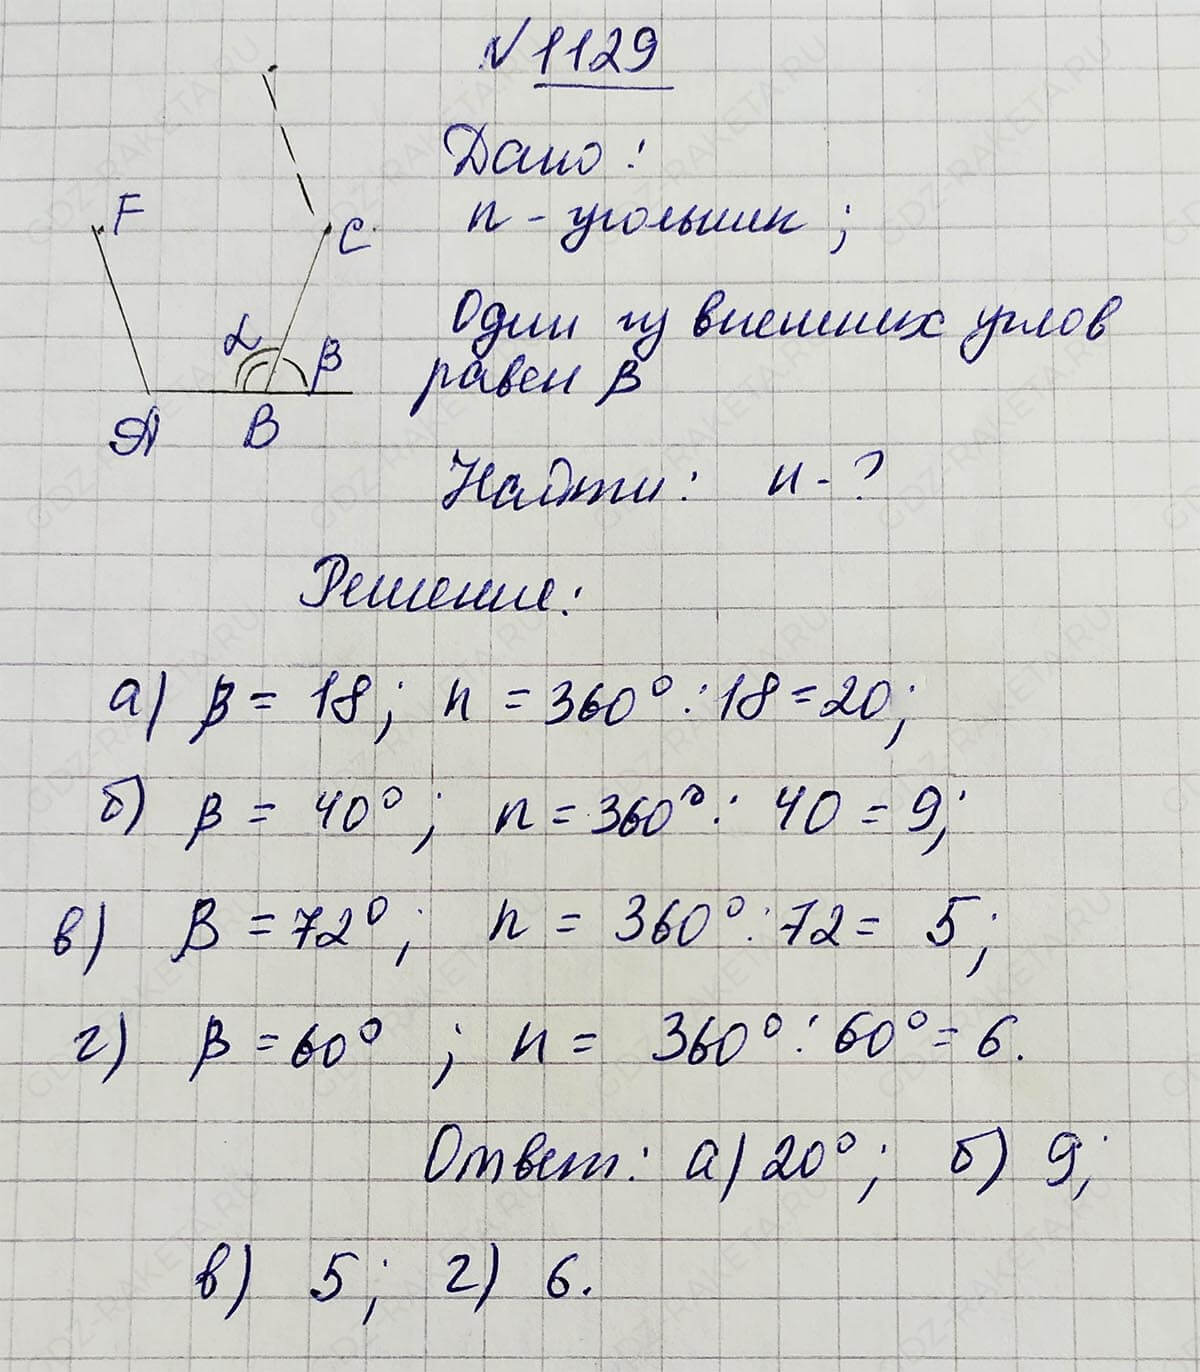 √1129
F
C
α
β
A
B
Дано:
n - угольник;
Один из внешних углов
равен β
Найти: n - ?
Решение:
а) β = 18; n = 360° : 18 = 20;
б) β = 40°; n = 360° : 40 = 9;
в) β = 72°; n = 360° : 72 = 5;
г) β = 60° ; n = 360° : 60° = 6.
Ответ: а) 20°; б) 9;
в) 5; г) 6.